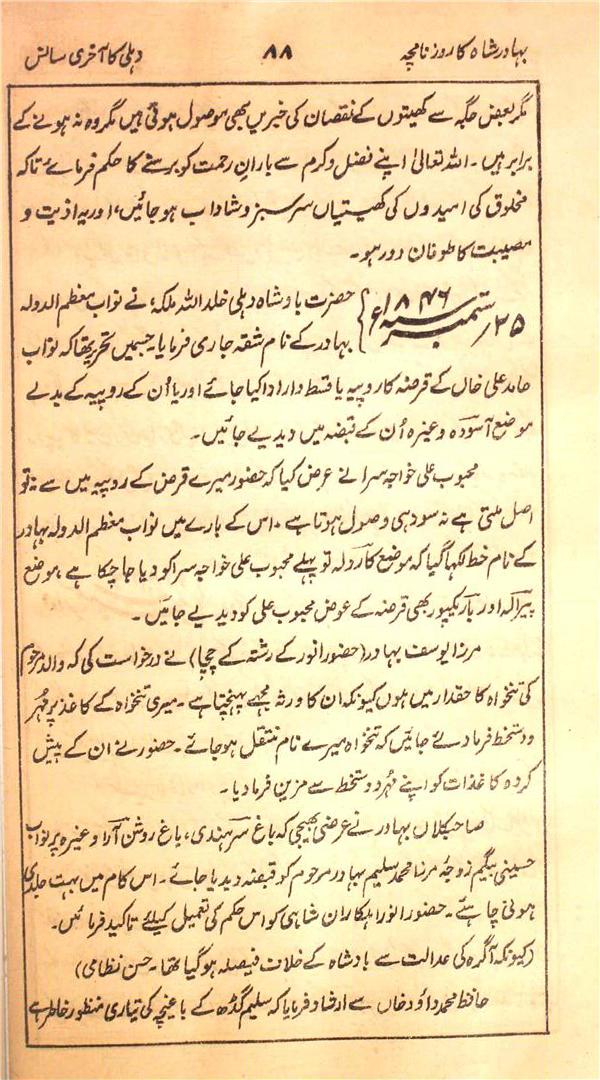 بہادر شاہ کا روزنامچہ ۸۸ دہلی کا آخری سانس
مگر بعض جگہ سے کھیتوں کے نقصان کی خبریں بھی موصول ہوئی ہیں مگر وہ نہ ہونے کے
برابر ہیں۔ اللہ تعالیٰ اپنے فضل و کرم سے بارانِ رحمت کو برسنے کا حکم فرمائے تاکہ
مخلوق کی امیدوں کی کھیتیاں سرسبز و شاداب ہو جائیں، اور یہ اذیت و
مصیبت کا طوفان دور ہو۔
۲۵ ستمبر سنہ ۱۸۴۶ء } حضرت بادشاہ دہلی خلد اللہ ملکہ، نے نواب معظم الدولہ
بہادر کے نام شقہ جاری فرمایا۔ جسمیں تحریر تھا کہ نواب
حامد علی خاں کے قرضہ کا روپیہ یا قسط وار ادا کیا جائے اور یا اُن کے روپیہ کے بدلے
موضع آسودہ وغیرہ اُن کے قبضہ میں دیدیے جائیں۔
محبوب علی خواجہ سرا نے عرض کیا کہ حضور میرے قرض کے روپیہ میں سے نہ تو
اصل ملتی ہے نہ سود ہی وصول ہوتا ہے۔ اس کے بارے میں نواب معظم الدولہ بہادر
کے نام خط لکھا گیا کہ موضع کاردلہ تو پہلے محبوب علی خواجہ سرا کو دیا جا چکا ہے، موضع
پیراکہ اور باریکپور بھی قرضہ کے عوض محبوب علی کو دیدیے جائیں۔
مرزا یوسف بہادر (حضور انور کے رشتہ کے چچا) نے درخواست کی کہ والد مرحوم
کی تنخواہ کا حقدار میں ہوں کیونکہ ان کا ورثہ مجھے پہنچتا ہے۔ میری تنخواہ کے کاغذ پر مُہر
و دستخط فرما دئے جائیں کہ تنخواہ میرے نام منتقل ہو جائے۔ حضور نے ان کے پیش
کردہ کاغذات کو اپنے مُہر و دستخط سے مزین فرما دیا۔
صاحب کلاں بہادر نے عرضی بھیجی کہ باغ سرہندی، باغ روشن آرا وغیرہ پر نواب
حسینی بیگم زوجۂ مرزا محمد سلیم بہادر مرحوم کو قبضہ دیدیا جائے۔ اس کام میں بہت جلدی
ہونی چاہئے۔ حضور انور اہلکاران شاہی کو اس حکم کی تعمیل کیلئے تاکید فرمائیں۔
(کیونکہ آگرہ کی عدالت سے بادشاہ کے خلاف فیصلہ ہو گیا تھا۔ حسن نظامی)
حافظ محمد داؤد خاں سے ارشاد فرمایا کہ سلیم گڈھ کے باغیچہ کی تیاری منظور خاطر ہے